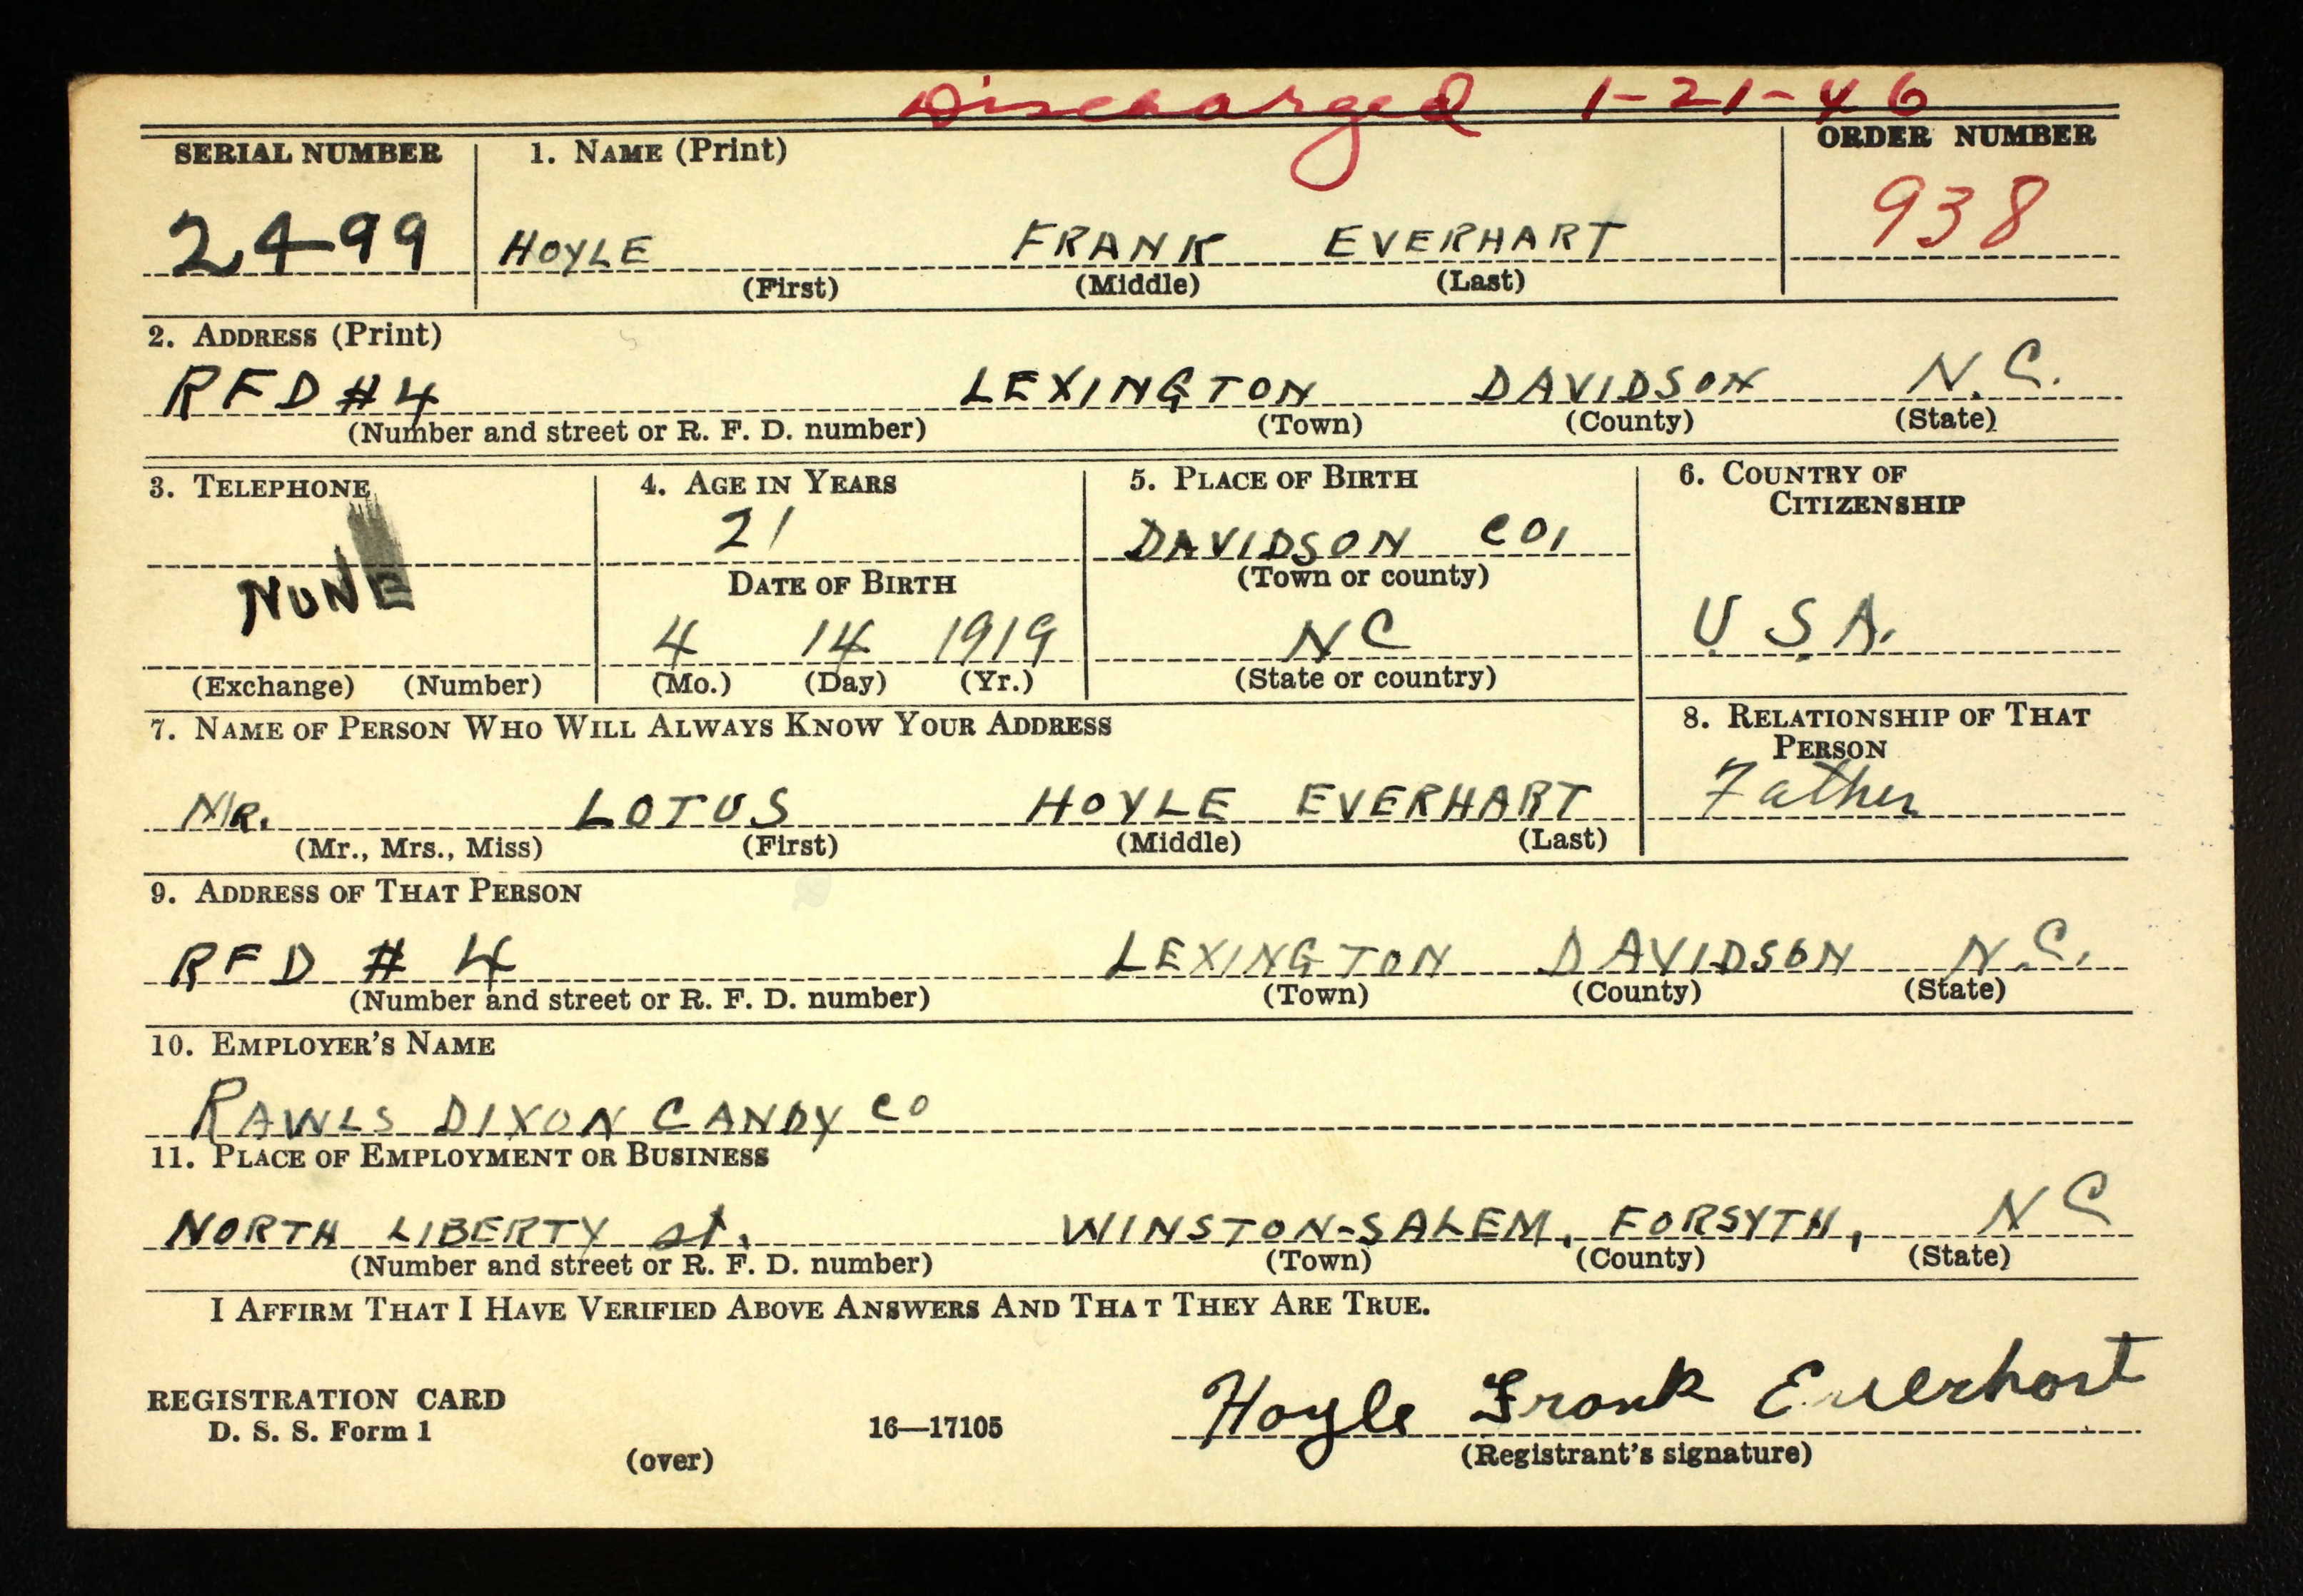 Discharged 1-21-46
SERIAL NUMBER 1. NAME (Print) ORDER NUMBER
2499 HOYLE FRANK EVERHART 938
(First) (Middle) (Last)
2. ADDRESS (Print)
RFD #4 LEXINGTON DAVIDSON N.C.
(Number and street or R. F. D. number) (Town) (County) (State)
3. TELEPHONE 4. AGE IN YEARS 5. PLACE OF BIRTH 6. COUNTRY OF
CITIZENSHIP
21 DAVIDSON CO.
DATE OF BIRTH (Town or county)
NONE 4 14 1919 NC U.S.A.
(Exchange) (Number) (Mo.) (Day) (Yr.) (State or country)
7. NAME OF PERSON WHO WILL ALWAYS KNOW YOUR ADDRESS 8. RELATIONSHIP OF THAT
PERSON
MR. LOTUS HOYLE EVERHART Father
(Mr., Mrs., Miss) (First) (Middle) (Last)
9. ADDRESS OF THAT PERSON
RFD # 4 LEXINGTON DAVIDSON N.C.
(Number and street or R. F. D. number) (Town) (County) (State)
10. EMPLOYER'S NAME
RAWLS DIXON CANDY CO
11. PLACE OF EMPLOYMENT OR BUSINESS
NORTH LIBERTY st. WINSTON-SALEM, FORSYTH, NC
(Number and street or R. F. D. number) (Town) (County) (State)
I AFFIRM THAT I HAVE VERIFIED ABOVE ANSWERS AND THAT THEY ARE TRUE.
REGISTRATION CARD
D. S. S. Form 1 16—17105 Hoyle Frank Everhart
(over) (Registrant's signature)